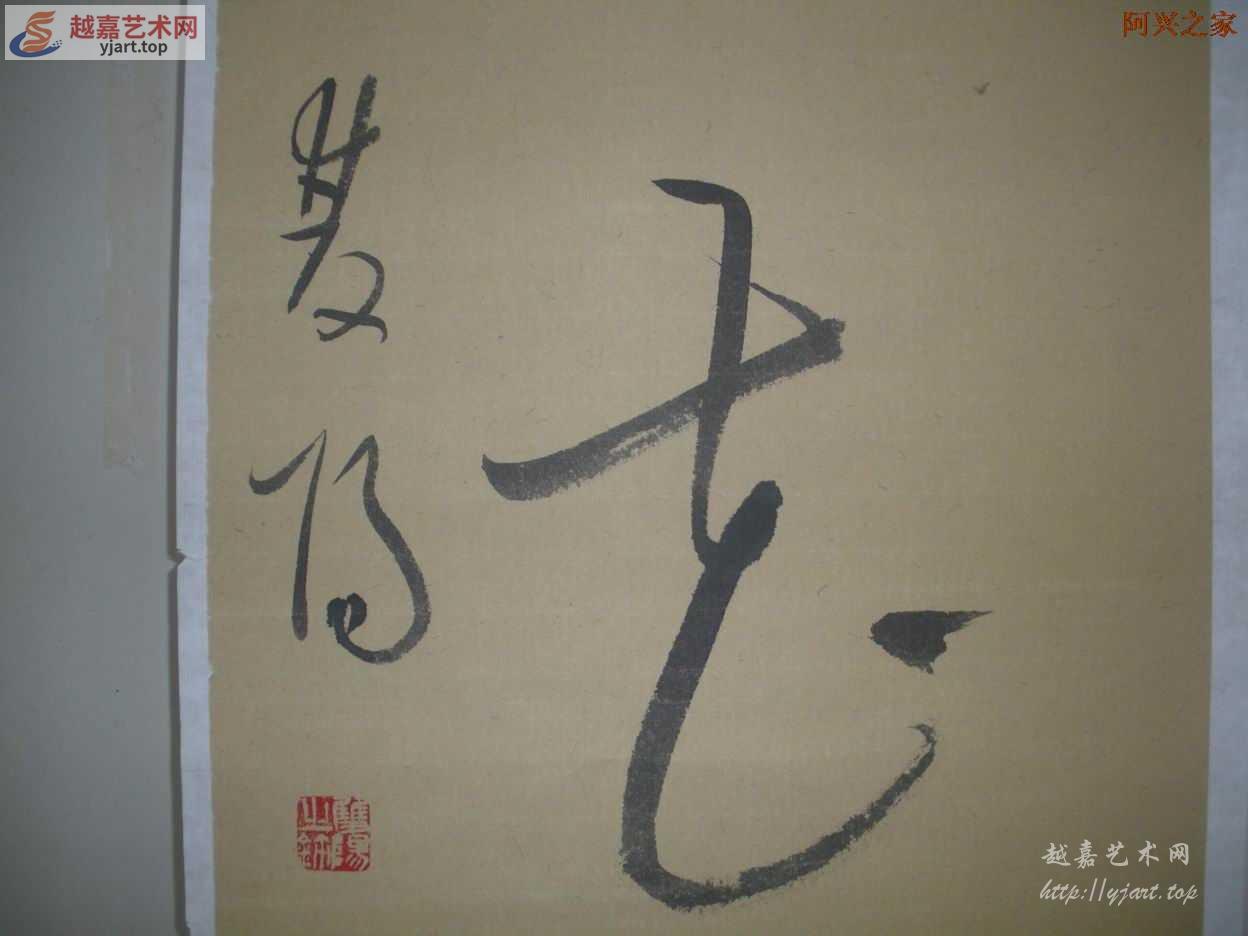 越嘉艺术网
yjart.top
阿兴之家
雙陽
雙陽之鉨
越嘉艺术网
http://yjart.top